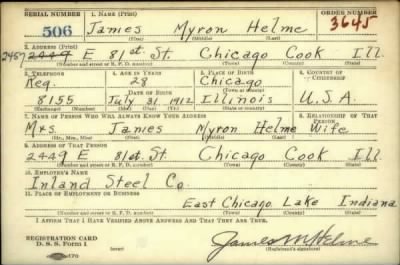 SERIAL NUMBER 1. NAME (Print) ORDER NUMBER
506 James Myron Helme 3645
(First) (Middle) (Last)
2. ADDRESS (Print)
2457 2449 E 81st St. Chicago Cook Ill.
(Number and street or R. F. D. number) (Town) (County) (State)
3. TELEPHONE 4. AGE IN YEARS 5. PLACE OF BIRTH 6. COUNTRY OF CITIZENSHIP
Reg. 28 Chicago
DATE OF BIRTH (Town or county)
8155 July 31 1912 Illinois U.S.A.
(Exchange) (Number) (Mo.) (Day) (Yr.) (State or country)
7. NAME OF PERSON WHO WILL ALWAYS KNOW YOUR ADDRESS 8. RELATIONSHIP OF THAT PERSON
Mrs. James Myron Helme Wife
(Mr., Mrs., Miss) (First) (Middle) (Last)
9. ADDRESS OF THAT PERSON
2449 E 81st. St. Chicago Cook Ill
(Number and street or R. F. D. number) (Town) (County) (State)
10. EMPLOYER'S NAME
Inland Steel Co.
11. PLACE OF EMPLOYMENT OR BUSINESS
East Chicago Lake Indiana
(Number and street or R. F. D. number) (Town) (County) (State)
I AFFIRM THAT I HAVE VERIFIED ABOVE ANSWERS AND THAT THEY ARE TRUE.
REGISTRATION CARD
D. S. S. Form 1 (over) James M Helme
(Registrant's signature)